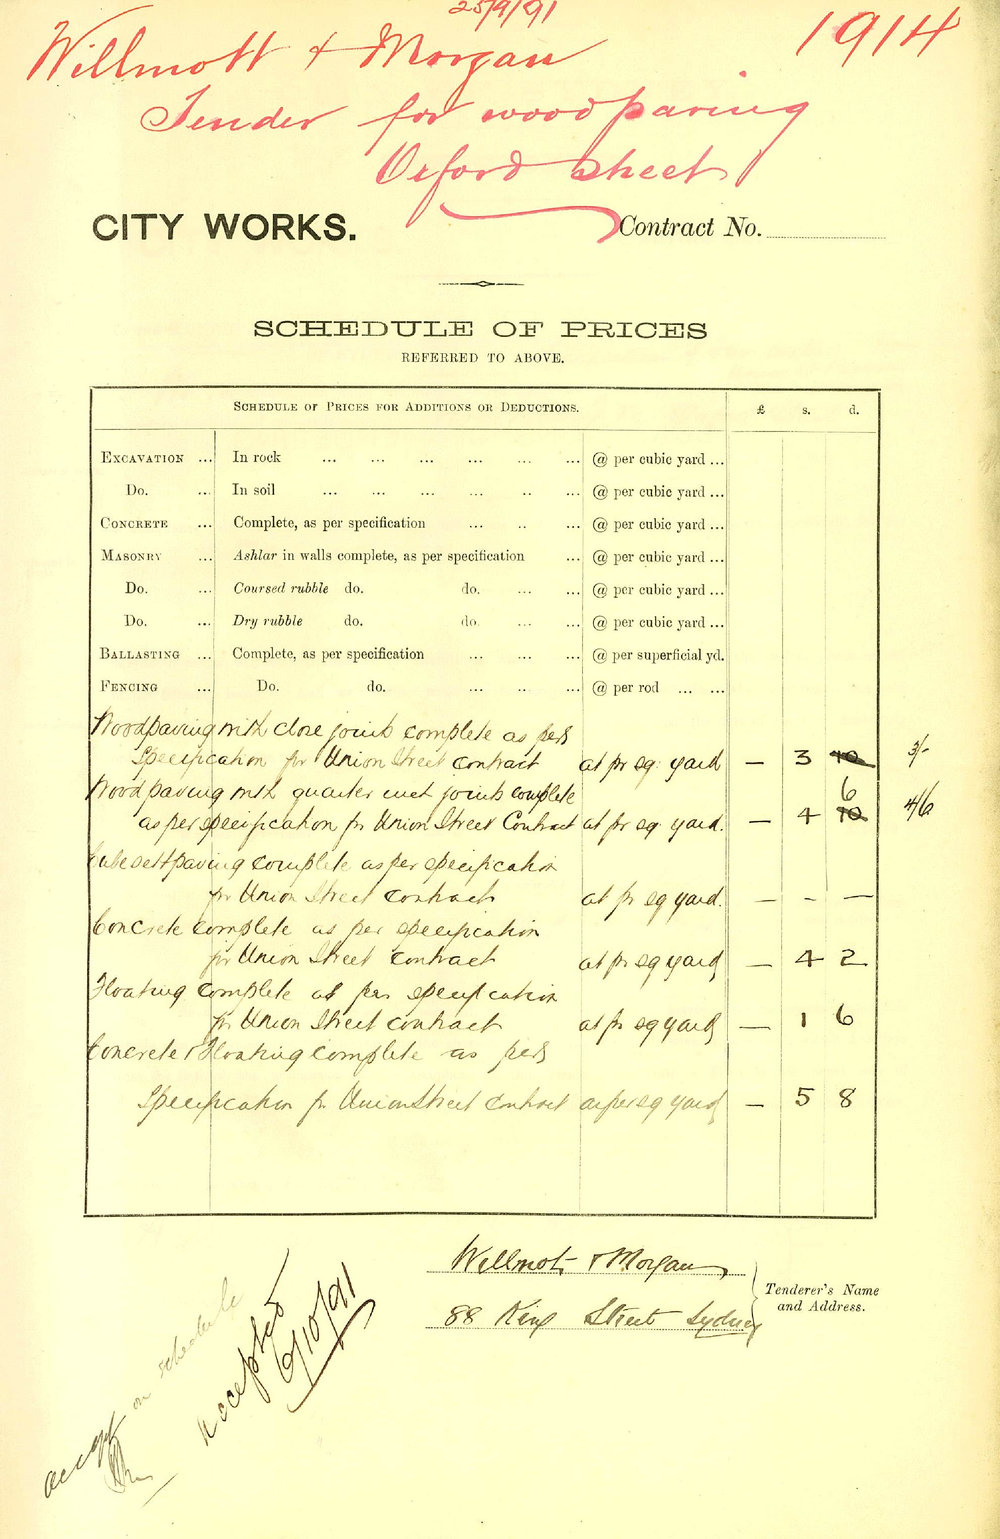 25/9/91
1914
Willmott & Morgan
Tender for woodpaving
Oxford Street
CITY WORKS.
Contract No.
SCHEDULE OF PRICES
REFERRED TO ABOVE.
SCHEDULE OF PRICES FOR ADDITIONS OR DEDUCTIONS. £ s. d.
EXCAVATION ... In rock ... ... ... ... ... ... @ per cubic yard ...
Do. ... In soil ... ... ... ... .. ... @ per cubic yard ...
CONCRETE ... Complete, as per specification ... .. ... @ per cubic yard ...
MASONRY ... Ashlar in walls complete, as per specification ... @ per cubic yard ...
Do. ... Coursed rubble do. do. ... ... @ per cubic yard ...
Do. ... Dry rubble do. do. ... ... @ per cubic yard ...
BALLASTING ... Complete, as per specification ... ... ... @ per superficial yd.
FENCING ... Do. do. ... .. ... @ per rod ... ...
Woodpaving with close joints complete as per
Specification for Union Street contract at pr sq. yard — 3 10 3/-
Wood paving with quarter inch joints complete 6
as per specification for Union Street Contract at pr sq. yard. — 4 10 4/6
Cube sett paving complete as per specification
for Union Street contract at pr sq yard. — - —
Concrete complete as per specification
for Union Street contract at pr sq yard — 4 2
Floating complete as per specification
for Union Street contract at pr sq yard — 1 6
Concrete & Floating complete as per
Specification for Union Street contract as per sq yard — 5 8
Willmott & Morgan
88 King Street Sydney
Tenderer's Name
and Address.
accept on schedule
Accepted
6/10/91